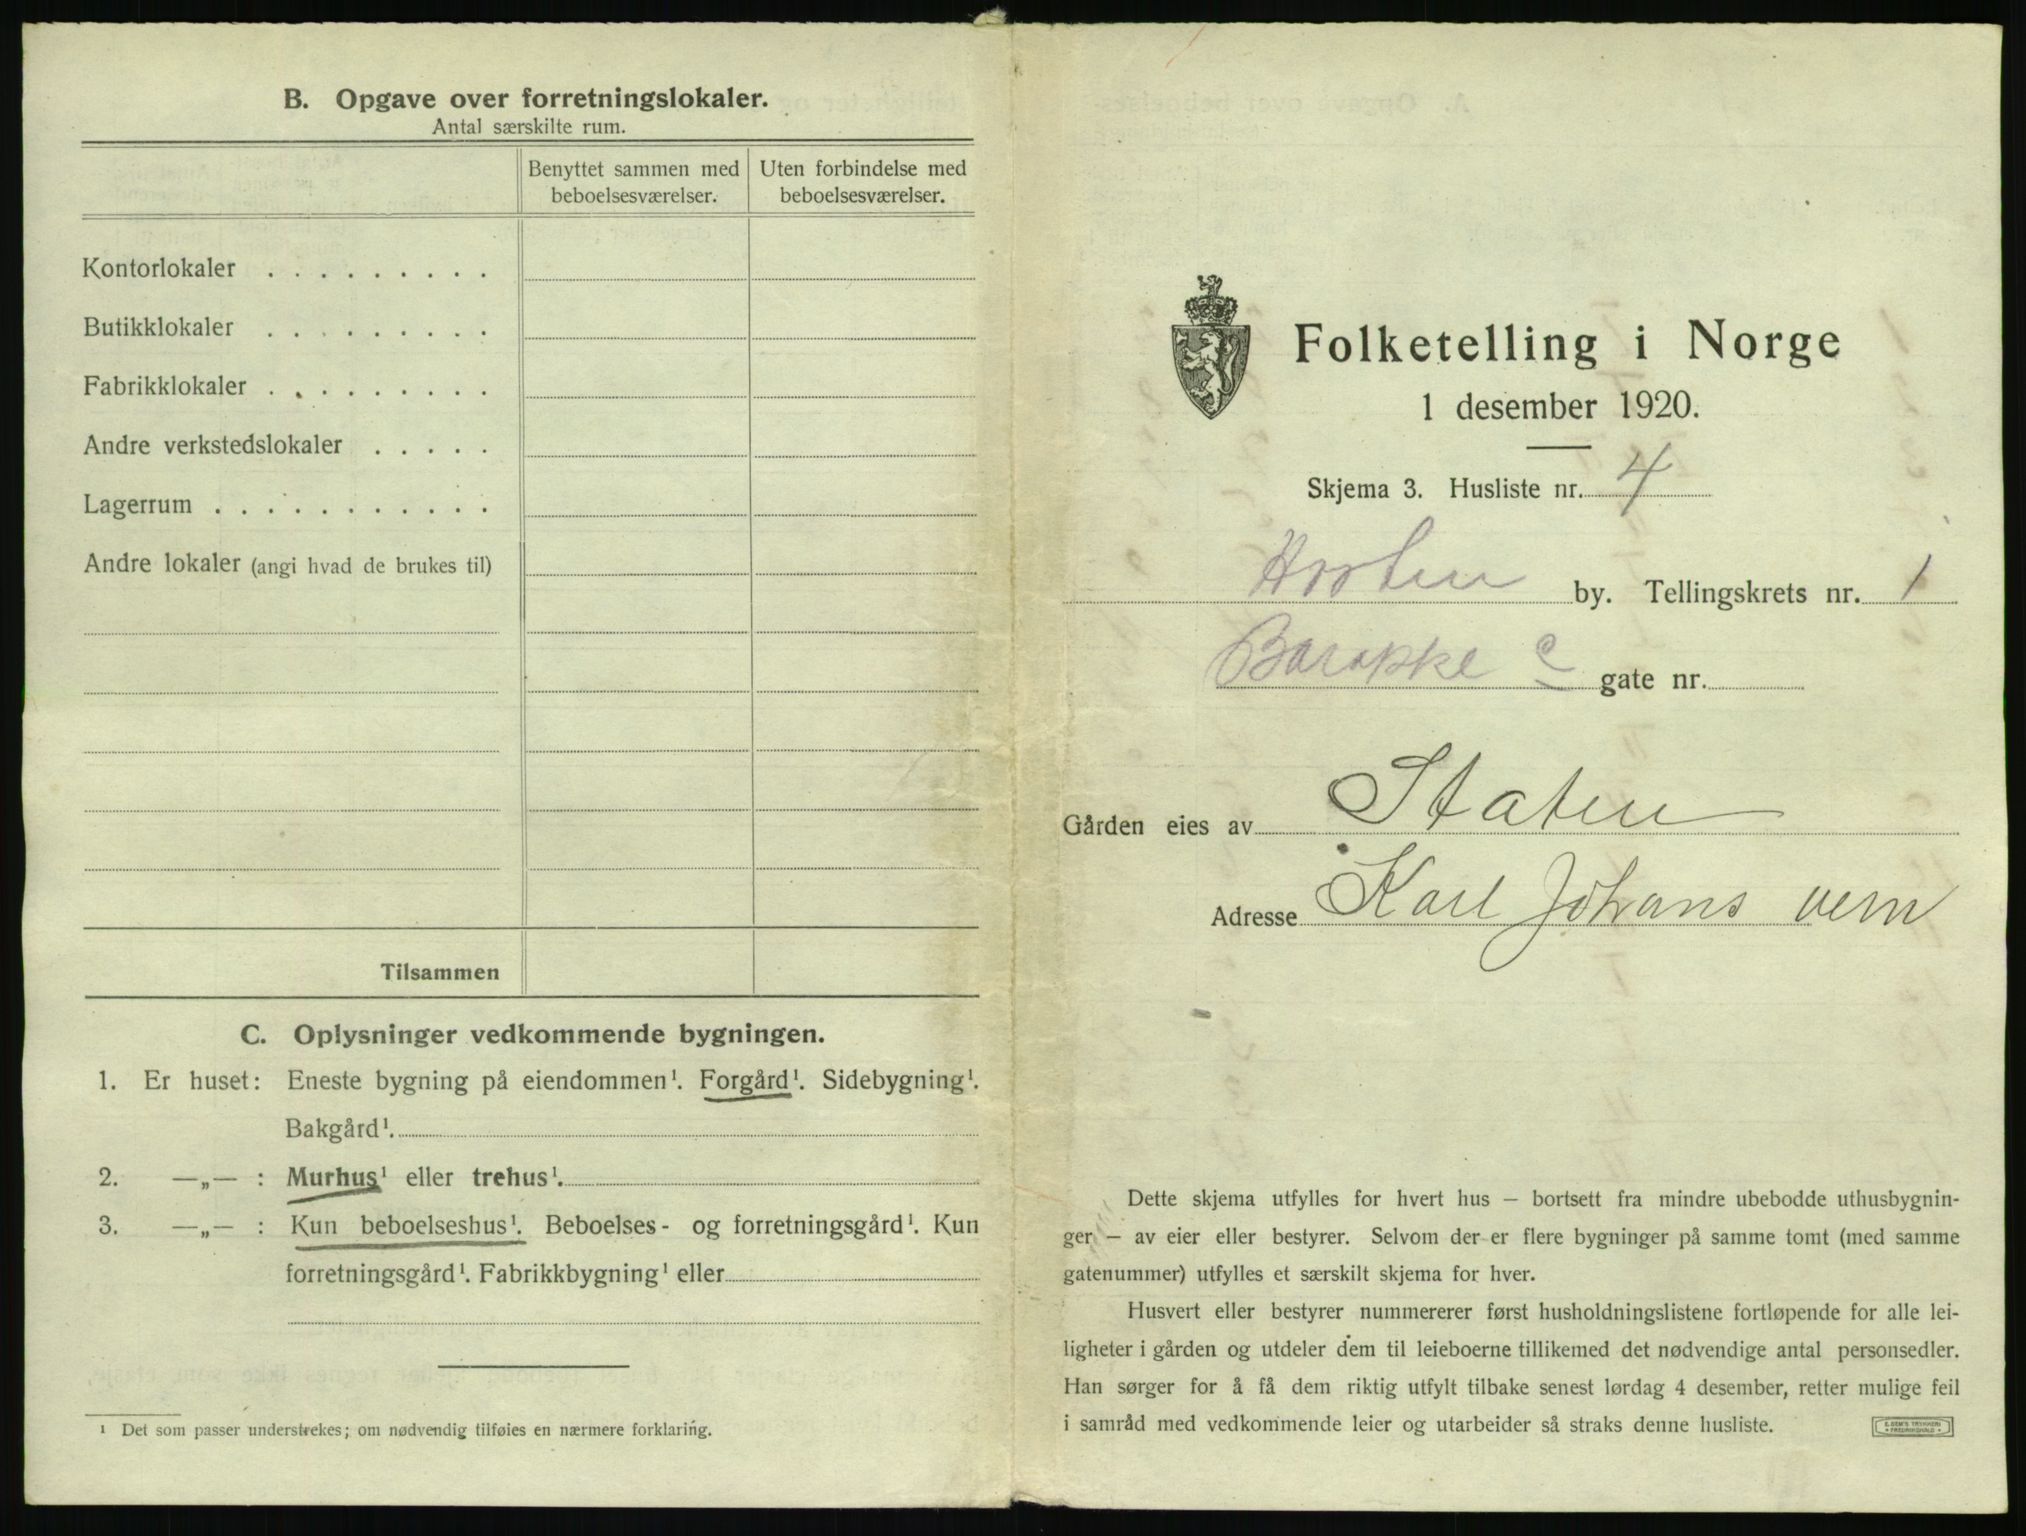 B. Opgave over forretningslokaler.
Antal særskilte rum.
Benyttet sammen med beboelsesværelser.
Uten forbindelse med beboelsesværelser.
Kontorlokaler . . . . . . . . .
Butikklokaler . . . . . . . . .
Fabrikklokaler . . . . . . . . .
Andre verkstedslokaler . . . . .
Lagerrum . . . . . . . . . . .
Andre lokaler (angi hvad de brukes til)
Tilsammen
C. Oplysninger vedkommende bygningen.
1. Er huset: Eneste bygning på eiendommen¹. Forgård¹. Sidebygning¹.
Bakgård¹.
2. —„— : Murhus¹ eller trehus¹.
3. —„— : Kun beboelseshus¹. Beboelses- og forretningsgård¹. Kun
forretningsgård¹. Fabrikkbygning¹ eller
¹ Det som passer understrekes; om nødvendig tilføies en nærmere forklaring.
Folketelling i Norge
1 desember 1920.
Skjema 3. Husliste nr. 4
Horten by. Tellingskrets nr. 1
Barakke C gate nr.
Gården eies av Staten
Adresse Karl Johans vern
Dette skjema utfylles for hvert hus – bortsett fra mindre ubebodde uthusbygnin-
ger – av eier eller bestyrer. Selvom der er flere bygninger på samme tomt (med samme
gatenummer) utfylles et særskilt skjema for hver.
Husvert eller bestyrer nummererer først husholdningslistene fortløpende for alle lei-
ligheter i gården og utdeler dem til leieboerne tillikemed det nødvendige antal personsedler.
Han sørger for å få dem riktig utfylt tilbake senest lørdag 4 desember, retter mulige feil
i samråd med vedkommende leier og utarbeider så straks denne husliste.
E. SEM'S TRYKKERI
FREDRIKSHALD